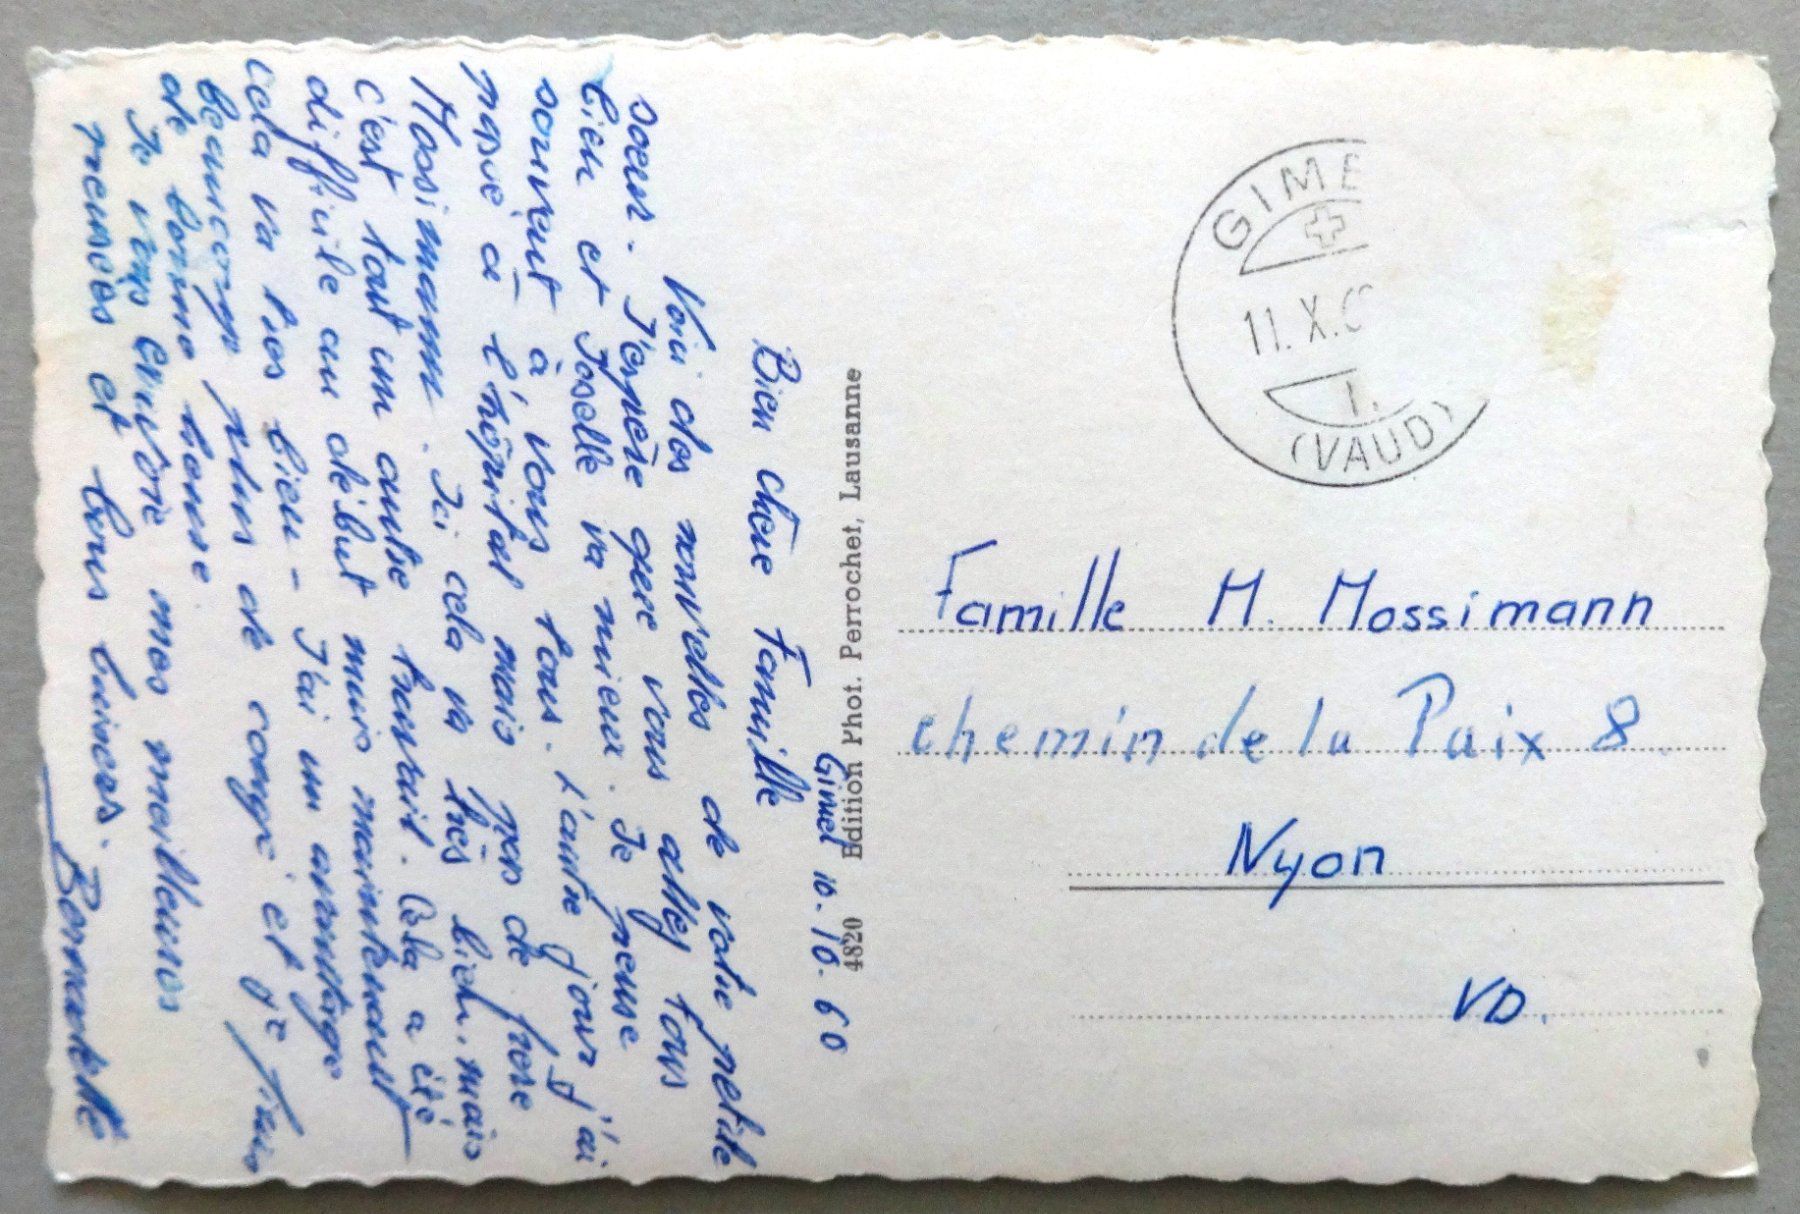 Gimel 10.10.60
Bien chère Famille
Voici des nouvelles de votre petite
soeur. J'espère que vous allez tous
bien et Joselle va mieux. Je pense
souvent à vous tous. L'autre jour j'ai
passé à l'hôpital mais pas de frère
Mossimann. Ici cela va très bien, mais
c'est tout un autre travail. Cela a été
difficile au début mais maintenant
cela va très bien - J'ai un avantage
beaucoup plus de congé et je suis
de bonne heure.
Je vous envoie mes meilleures
pensées et bons baisers.
Bernadette
4820 Edition Phot. Perrochet, Lausanne
GIME
11.X.6
1.
(VAUD)
Famille M. Mossimann
chemin de la Paix 8.
Nyon
VD.